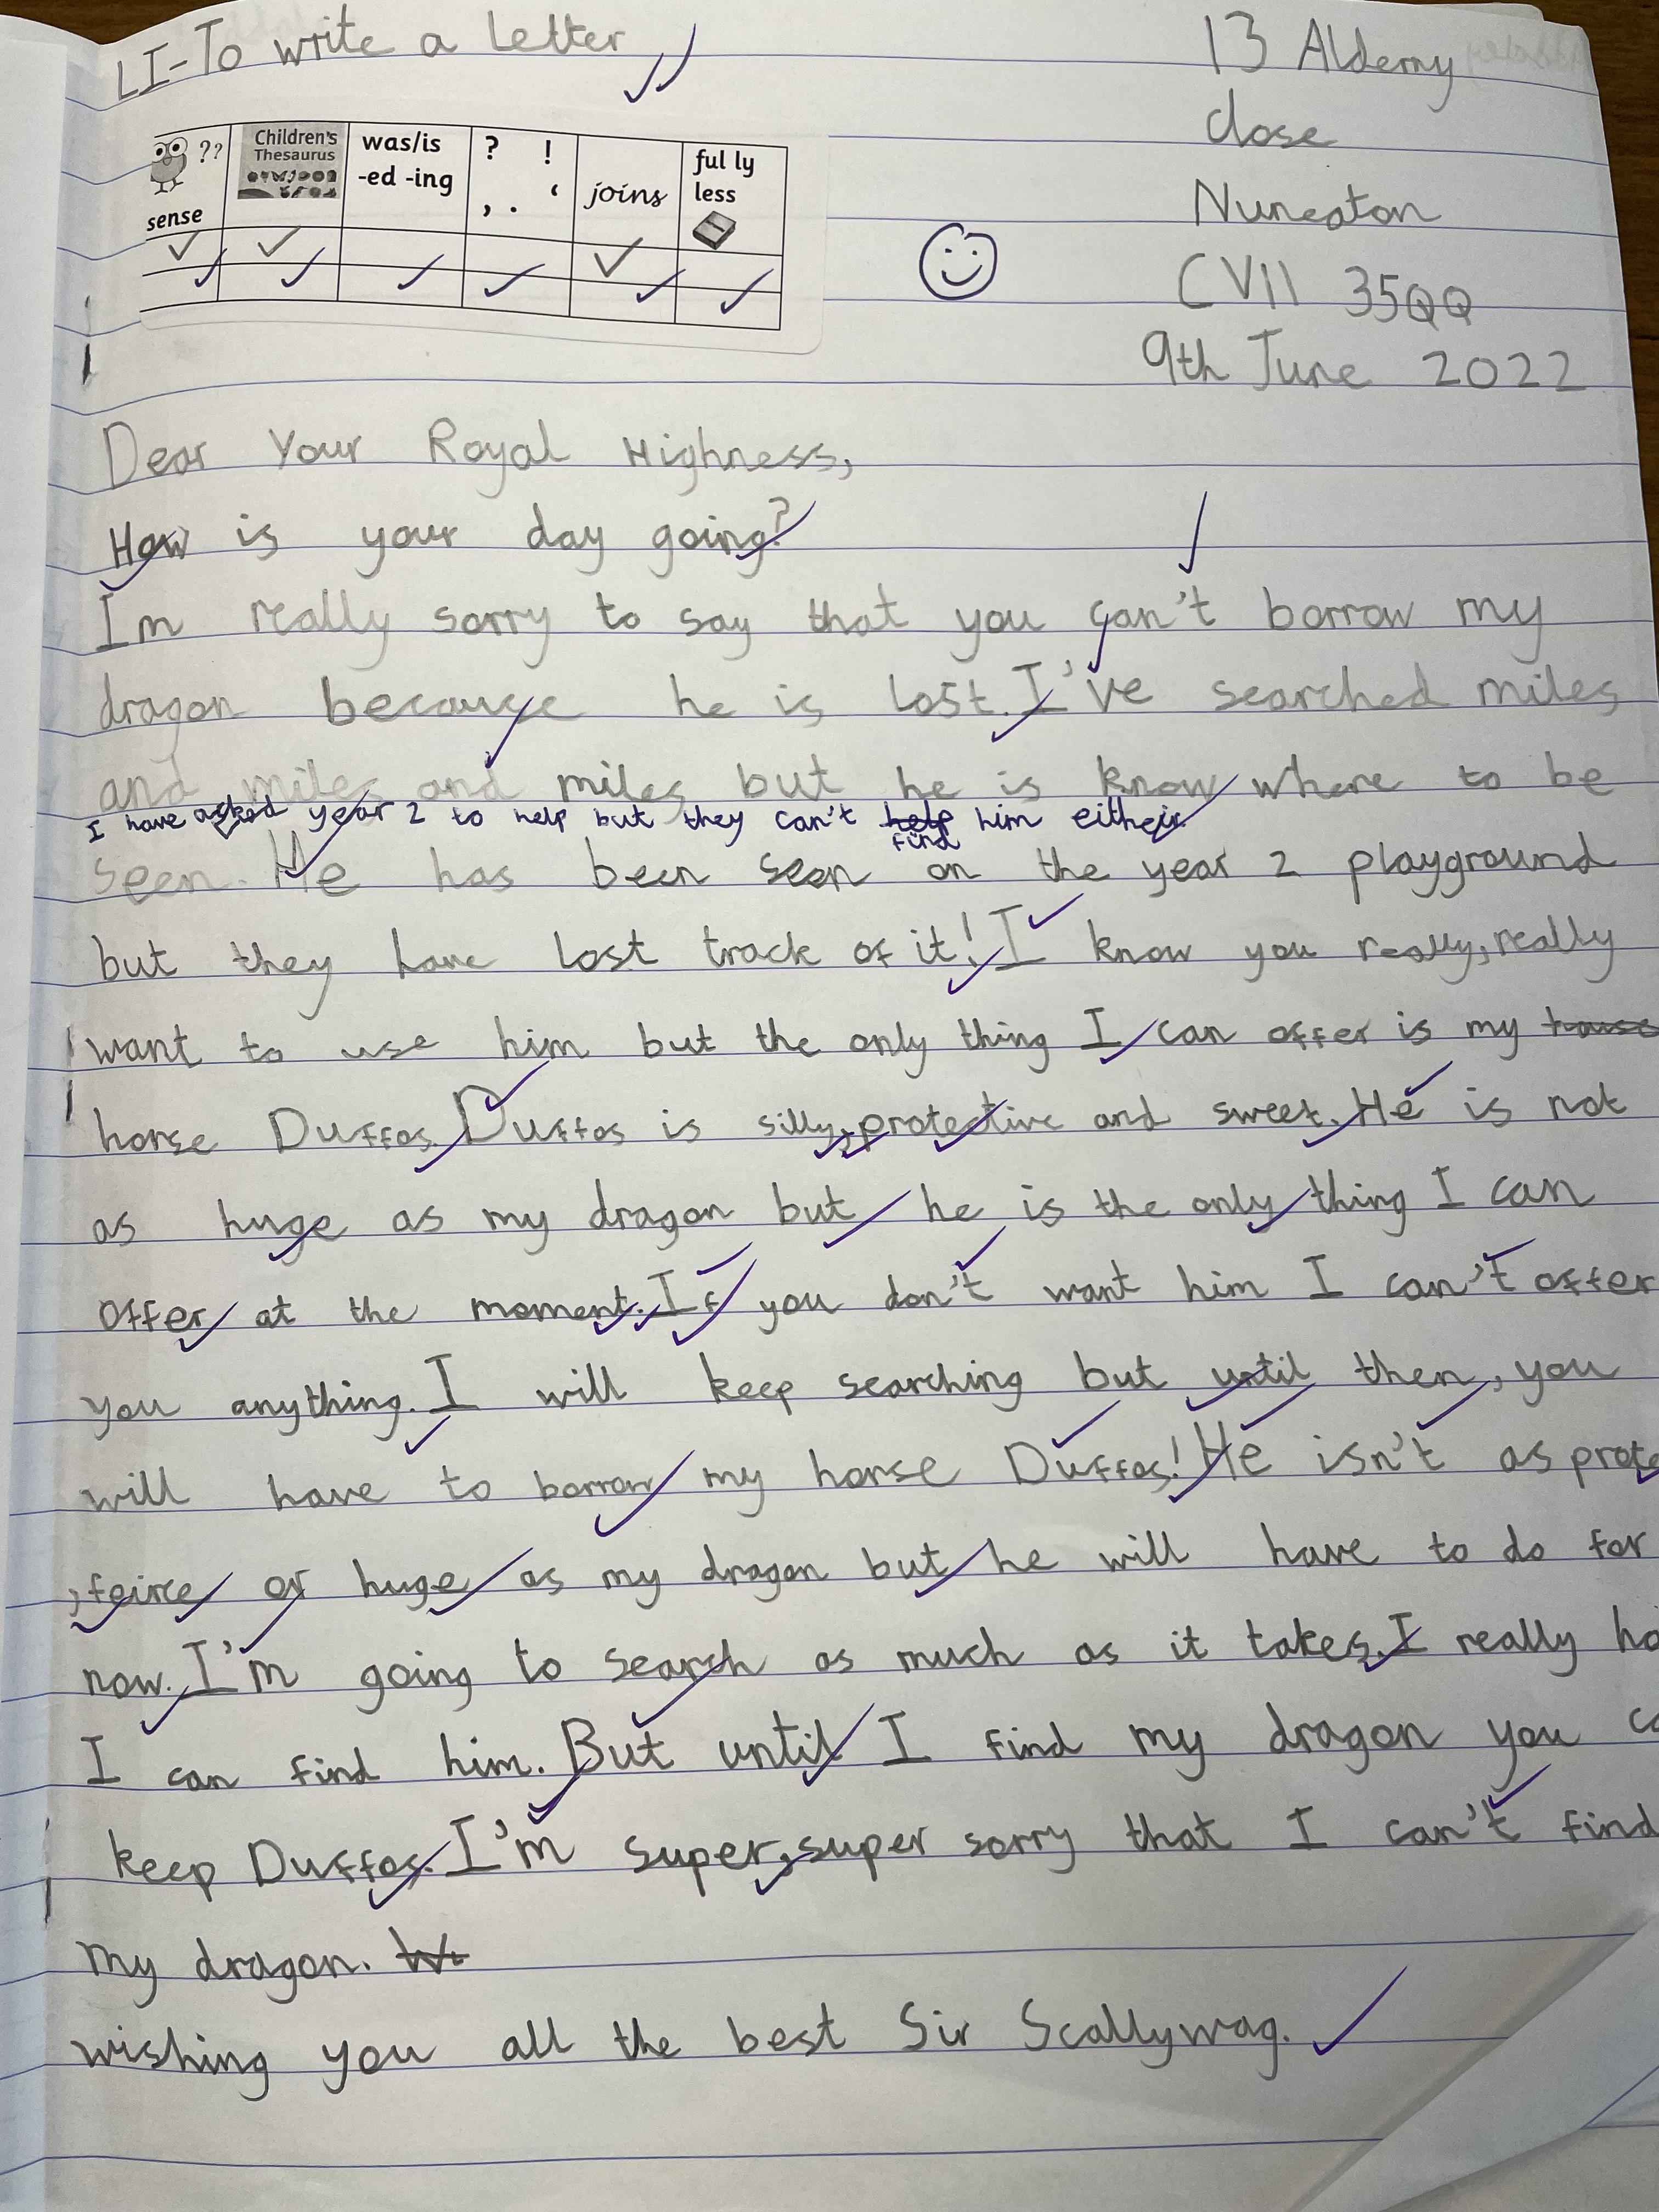 LI-To write a letter
13 Alderny
close
Nuneaton
CV11 35QQ
9th June 2022
??
sense
Children's
Thesaurus
was/is
-ed -ing
? !
, . ‘
joins
ful ly
less
Dear Your Royal Highness,
How is your day going?
Im really sorry to say that you can't borrow my
dragon because he is lost. I've searched miles
and miles and miles but he is know where to be
I have asked year 2 to help but they can't help find him either.
seen. He has been seen on the year 2 playground
but they have lost track of it! I know you really, really
want to use him but the only thing I can offer is my
horse Duffos. Duffos is silly, protective and sweet. He is not
as huge as my dragon but he is the only thing I can
offer at the moment. If you don't want him I can't offer
you anything. I will keep searching but until then, you
will have to borrow my horse Duffos! He isn't as prote
, feirce or huge as my dragon but he will have to do for
now. I'm going to search as much as it takes. I really ho
I can find him. But until I find my dragon you ca
keep Duffos. I'm super, super sorry that I can't find
my dragon.
wishing you all the best Sir Scallywag.